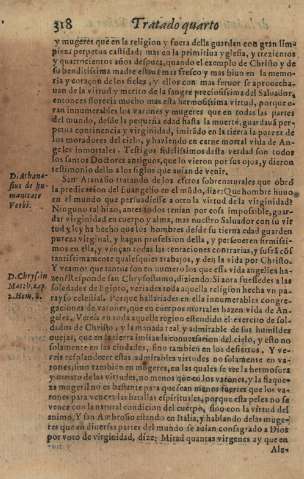 318 Tratado quarto
y mugeres que en la religion y fuera della guardan con gran lim
pieza perpetua castidad: mas en la primitiua yglesia, y trezientos
y quatrocientos años despues, quando el exemplo de Christo y de
su bendictissima madre estaua mas fresco y mas biuo en la memo-
ria y coraçon de los fieles, y ellos con mas feruor se aprouecha-
uan de la virtud y merito de la sangre preciosissima del Saluador,
entonces florecia mucho mas esta hermosissima virtud, porque e-
ran innumerables los varones y mugeres que en todas las partes
del mundo, desde la pequeña edad hasta la muerte guardauã per-
petua continencia y virginidad, imitãdo en la tierra la pureza de
los moradores del cielo, y haziendo en carne mortal vida de An-
geles inmortales. Testigos fidelissimos desta verdad son todos
los santos Doctores antiguos, que lo vieron por sus ojos, y dieron
testimonio dello a los siglos que auian de venir.
San Atanasio tratando de los efetos sobrenaturales que obrò
la predicacion del Euangelio en el mũdo, dize: Que hombre huuo
en el mundo que persuadiesse a otro la virtud de la virginidad?
Ninguno tal hizo, antes todos tenian por cosa impossible, guar-
dar virginidad en cuerpo y alma, mas nuestro Saluador con su vir
tud y ley ha hecho que los hombres desde su tierna edad guarden
pureza virginal, y hagan profession della, y perseueren firmissi-
mos en ella, y vençan todas las tentaciones contrarias, y sufrã cõs
tantissimamente qualesquier trabajos, y den la vida por Christo.
D. Athana-
sius de hu-
manitate
Verbi.
Y veamos que tantos son en numero los que esta vida angelica ha-
zen? Responde san Chrysostomo, diziendo: Si aora fuessedes a las
soledades de Egipto, veriades toda aquella region hecha vn pa-
rayso celestial. Porque hallariades en ella innumerables congre-
gaciones de varones, que en cuerpos mortales hazen vida de An-
geles. Vereis en toda aquella region estendido el exercito de sol-
dados de Christo, y la manada real y admirable de sus humildes
ouejas, que en la tierra imitan la conuersacion del cielo, y esto no
solamente en las ciudades, sino tambien en los desiertos. Y ve-
reis resplandecer estas admirables virtudes no solamente en va-
rones, sino tambien en mugeres, en las quales se vee la hermosura
D. Chrys. in
Matth. cap.
2. Hom. 8.
y ornato de las virtudes, no menos que en los varones, y la flaque-
za mugeril no es bastante para que sean menos fuertes que los va-
rones para vencer las batallas espirituales, porque esta pelea no se
vence con la natural condicion del cuerpo, sino con la virtud del
animo. Y san Ambrosio estando en Italia, y hablando de las muge-
res que en diuersas partes del mundo se auian consagrado a Dios
por voto de virginidad, dize: Mirad quantas virgenes ay que en
Ale-